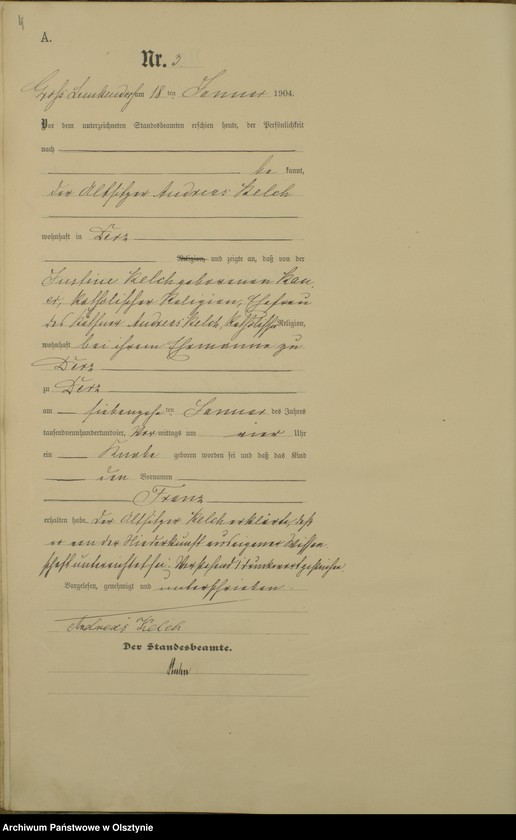 A.
Nr. 3
Groß Leuckendorf am 18 ten Januar 1904.
Vor dem unterzeichneten Standesbeamten erschien heute, der Persönlichkeit
nach
be kannt,
der Altsitzer Andreas Kelch
wohnhaft in Derz
Religion, und zeigte an, daß von der
Justine Kelch geborenen
katholischer Religion, Ehefrau
des Käthner Andreas Kelch, katholischer Religion,
wohnhaft bei ihrem Ehemanne zu
Derz
zu Derz
am siebenzehn ten Januar des Jahres
tausendneunhundertundvier, Vor mittags um vier Uhr
ein Knabe geboren worden sei und daß das Kind
den Vornamen
Franz
erhalten habe. Der Altsitzer Kelch erklärte, daß
er von der Niederkunft aus eigener Wissen
schaft unterrichtet sei. Vorstehend 1 Druckwort gestrichen
Vorgelesen, genehmigt und unterschrieben
Andreas Kelch
Der Standesbeamte.
Archiwum Państwowe w Olsztynie